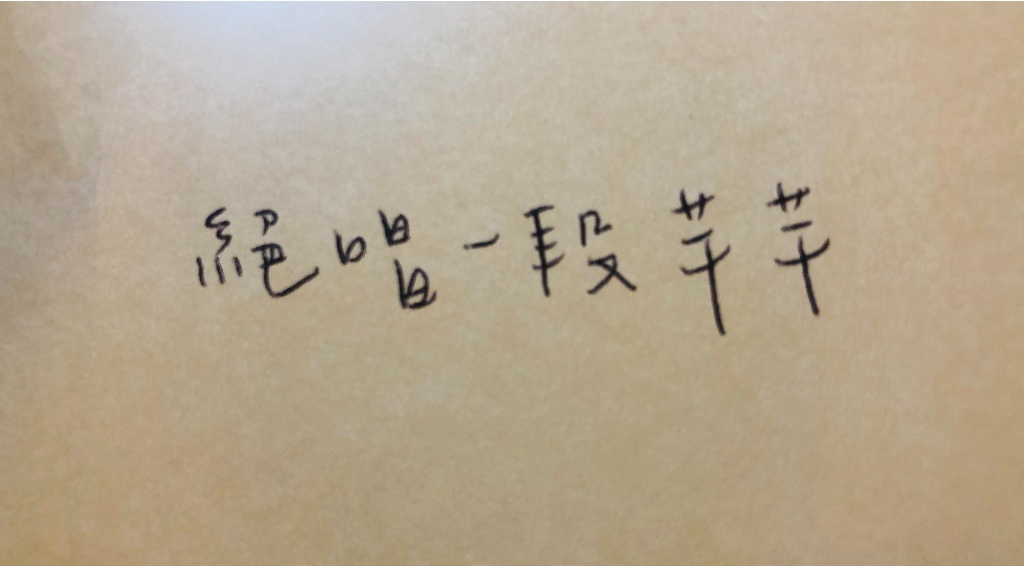 絕唱一段芊芊